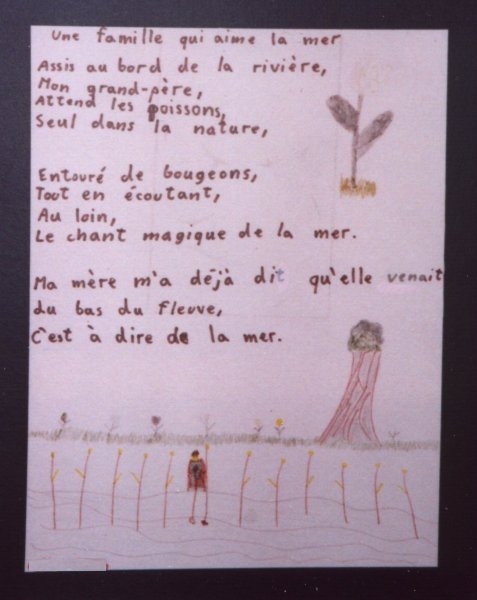 Une famille qui aime la mer
Assis au bord de la rivière,
Mon grand-père,
Attend les poissons,
Seul dans la nature,
Entouré de bougeons,
Tout en écoutant,
Au loin,
Le chant magique de la mer.
Ma mère m'a déjà dit qu'elle venait
du bas du fleuve,
C'est à dire de la mer.